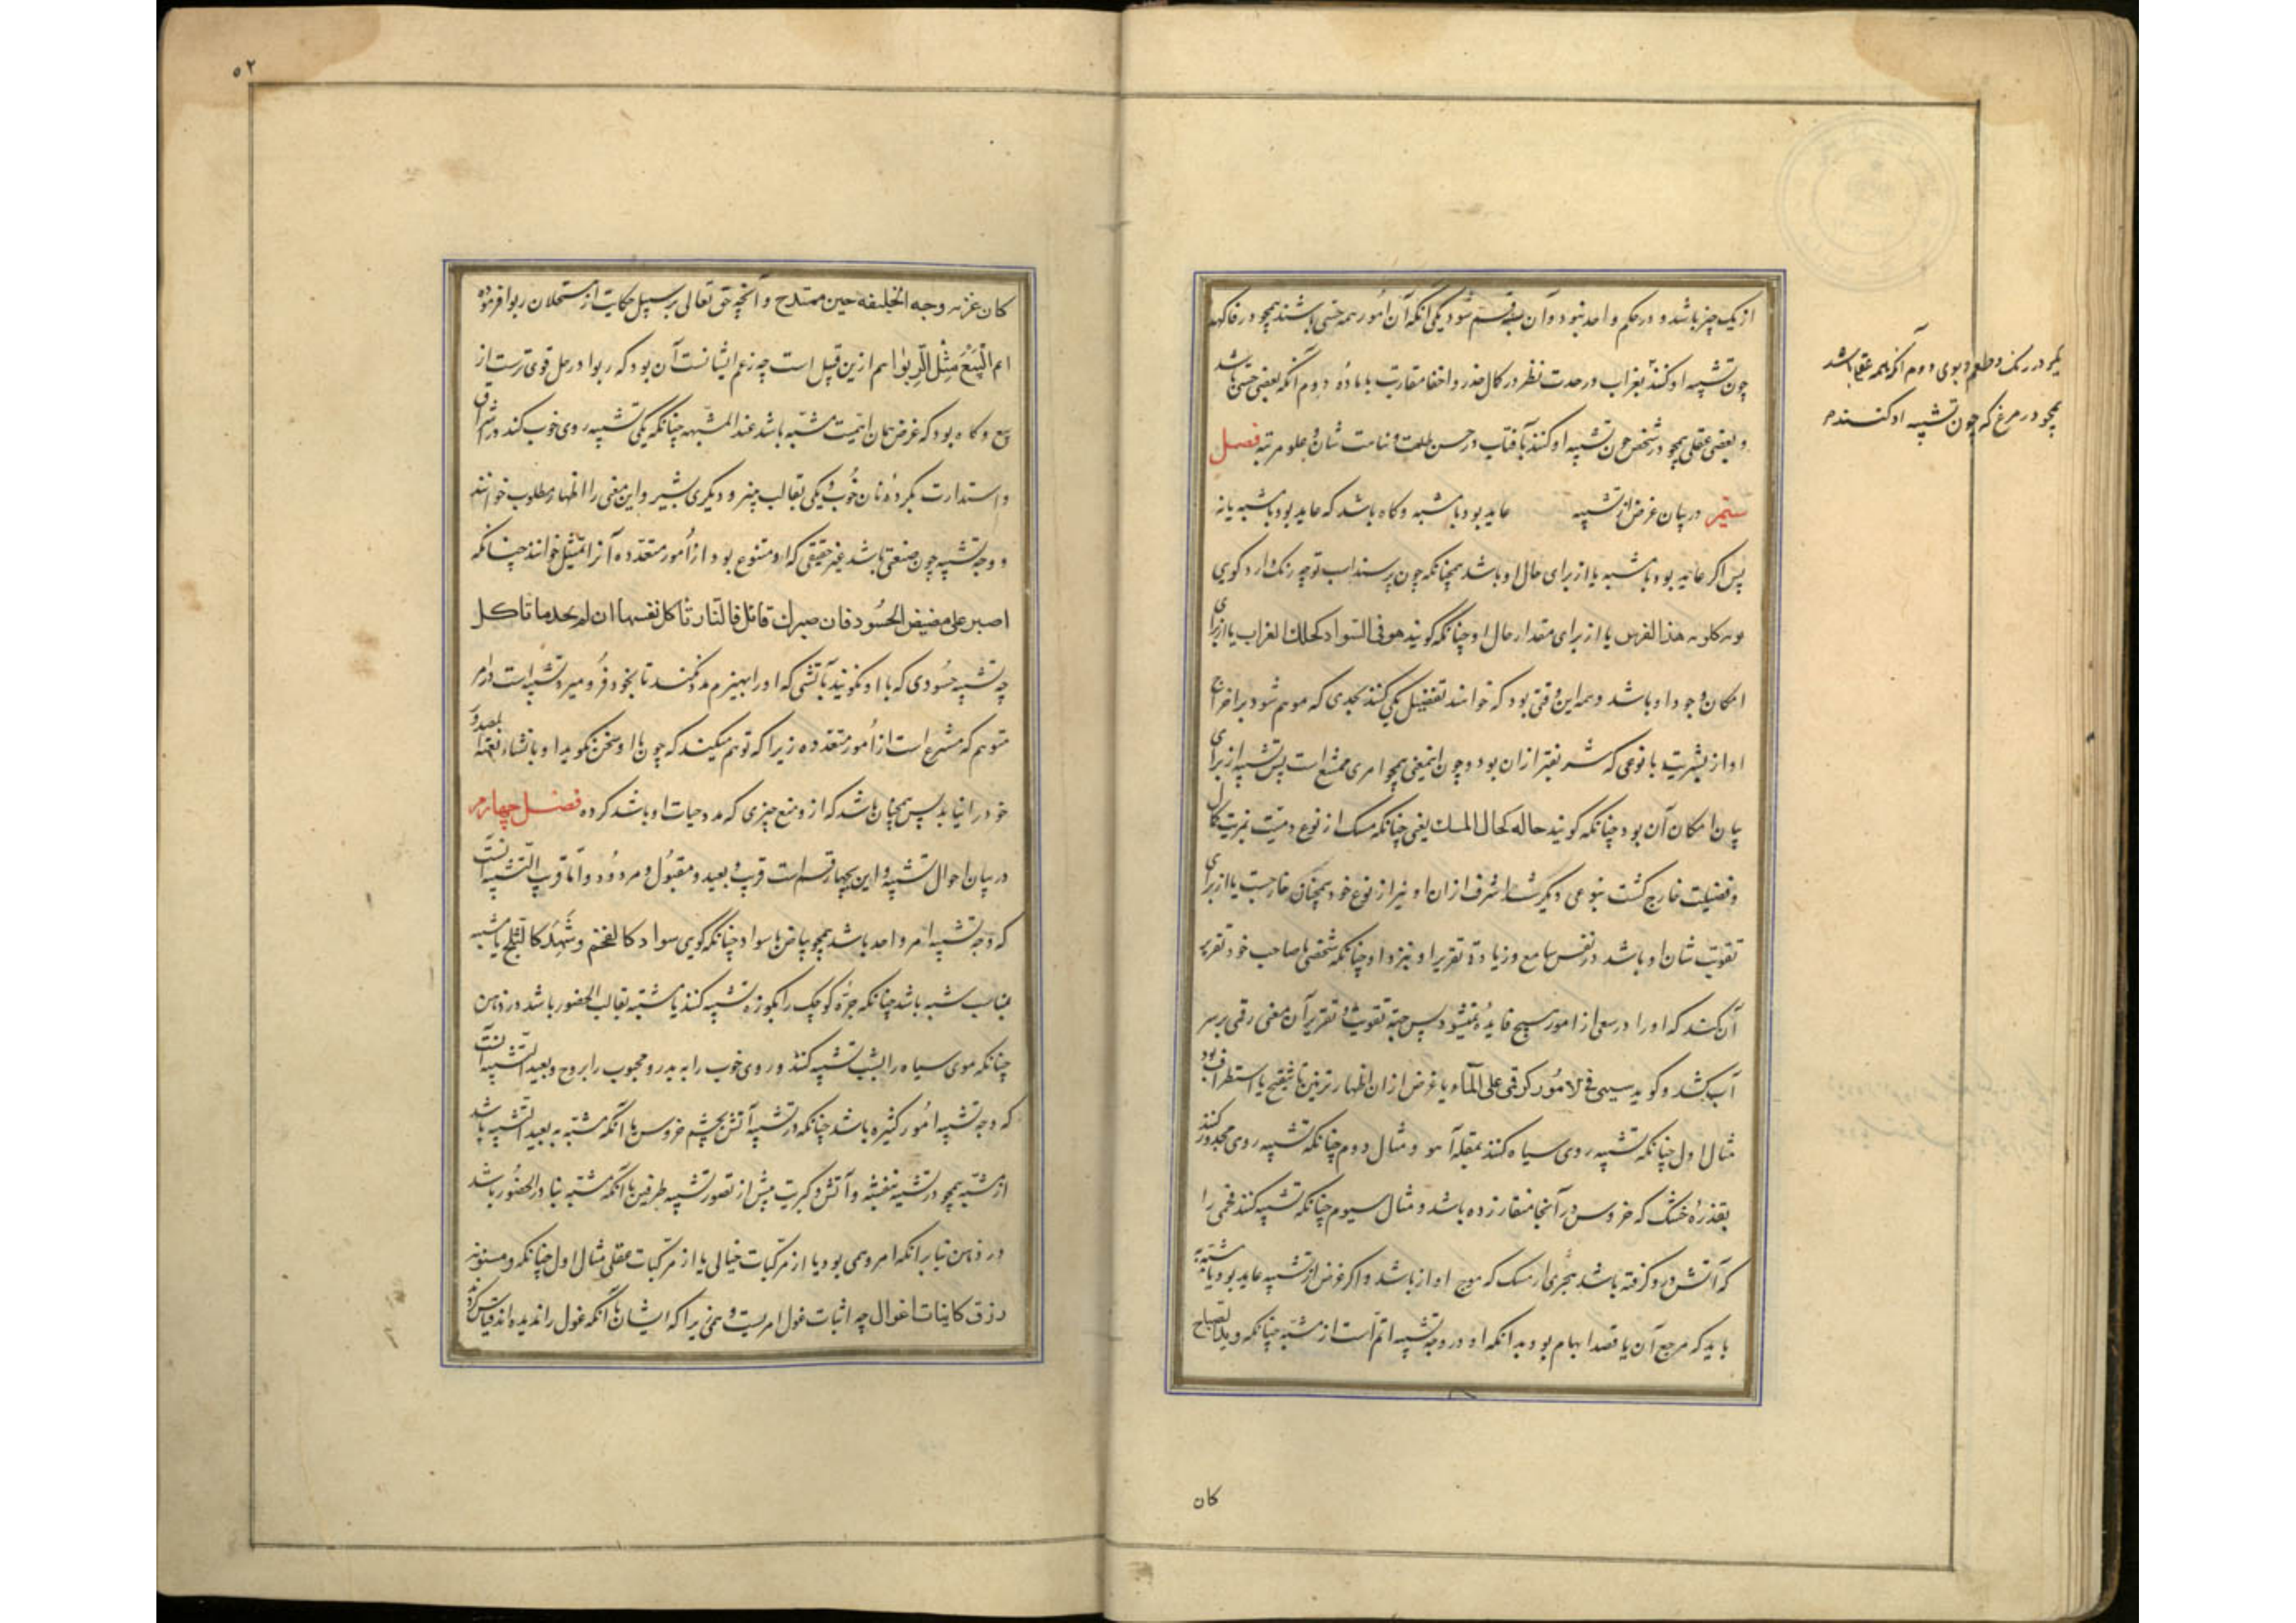 از یک چیز باشد و در حکم واحد نبود و آن بسه قسم شود یکی آنکه آن امور همه حسی باشند همچو در فاکهه
چون تشبیه او کنند بغراب در حدت نظر و کمال حذر و اخفا مقاربت با ماده دوم آنکه بعضی حسی باشد
و بعضی عقلی همچو در شخص چون تشبیه او کنند بآفتاب در حسن طلعت و نباهت شان و علو مرتبه فصل
سیم در بیان غرض از تشبیه عاید بود با مشبه و کاه باشد که عاید بود با مشبه به یا نه
پس اکر عاید بود با مشبه یا از برای حال او باشد همچنانکه چون پرسند اسب تو چه رنک دارد کویی
لونه کلون هذا الفرس یا از برای مقدار حال او چنانکه کویند هو فی السواد کحلک الغراب یا از برای
امکان وجود او باشد و همه این وقتی بود که خوانند تفضیل یکی کنند بحدی که موهم شود بر اخراج
او از بشریت با نوعی که شریفتر از ان بود و چون اینمعنی همچو امری ممتنع است پس تشبیه از برای
بیان امکان آن بود چنانکه کویند حاله کحال المسک یعنی چنانکه مسک از نوع دمیت بمزیت کمال
و فضیلت خارج کشت بنوعی دیکر شد اشرف از ان او نیز از نوع خود همچنان خارجست یا از برای
تقویت شان او باشد در نفس سامع و زیادة تقریر او نزد او چنانکه شخصی با صاحب خود تقریر
آن کند که او را در سعی از امور هیچ فایده نمیشود پس جهة تقویت و تقریر آن معنی رقمی بر سر
آب کشد و کوید سعیی فی الامور کرقمی علی المآء یا غرض از ان اظهار تزیین یا تقبیح یا استطراف بود
مثال اول چنانکه تشبیه روی سیاه کنند بمقله آهو و مثال دوم چنانکه تشبیه روی مجدور کنند
بعذرۀ خشک که خروس در آنجا منقار زده باشد و مثال سیوم چنانکه تشبیه کنند فحمی را
که آتش درو کرفته باشد ببحری از مسک که موج او از باشد و اکر غرض از تشبیه عاید بود با مشبه به
باید که مرجع آن یا قصد ابهام بود بدانکه او در وجه تشبیه اتم است از مشبه چنانکه وبدا الصباح
کان
یکی در رنک و طعم و بوی دوم آنکه همه عقلی باشد
همچو در مرغ که چون تشبیه او کنند
۵۲
کان غرته وجه الخلیفه حین ممتدح و آنچه حق تعالی بر سبیل حکایت از مستحلان ربوا فرموده
انما الْبَیْعُ مِثْلُ الرِّبٰوا هم ازین قبیل است چه زعم ایشانست آن بود که ربوا در حل قوی ترست از
بیع و کاه بود که غرض همان اهمیت مشبه به باشد عند المشبه چنانکه یکی تشبیه روی خوب کند در اشراق
و استدارت بکرده نان خوب و یکی بقالب پنیر و دیکری بشیر و این معنی را اظهار مطلوب خوانند
و وجه تشبیه چون صنعتی باشد غیر حقیقی که او متنوع بود از امور متعدده آنرا تمثیل خوانند چنانکه
اصبر علی مضیض الحسود فان صبرک قاتل فالنار تأکل نفسها ان لم تجد ما تاکل
چه تشبیه حسودی که با او نکویند بآتشی که او را بهیزم مدد نکنند تا بخود فرو میرد تشبیه است در امر
متوهم که منتزع است از امور متعدده زیرا که توهم میکنند که چون با او سخن نکویند او بانشاء نفثة المصدور
خود را نیابد پس همچنان باشد که از و منع چیزی که مدد حیات او باشد کرده فصل چهارم
در بیان احوال تشبیه و این بچهار قسم است قریب و بعید و مقبول و مردود و اما قریب التشبیه آنست
که وجه تشبیه امر واحد باشد همچو بیاض یا سواد چنانکه کویی سواد کالفحم و شهد کالثلج یا مشبه
مناسب مشبه به باشد چنانکه جرۀ کوچک را بکوزه تشبیه کنند یا مشبه به غالب الحضور باشد در ذهن
چنانکه موی سیاه را بشب تشبیه کنند و روی خوب را به بدر و محبوب را بروح و بعید التشبیه آنست
که وجه تشبیه امور کثیره باشد چنانکه در تشبیه آتش بچشم خروس یا آنکه مشبه به بعید التشبیه باشد
از مشبه همچو در تشبیه بنفشه و آتش و کبریت پیش از تصور تشبیه طرفین یا آنکه مشبه به نادر الحضور باشد
در ذهن بنا بر آنکه امر وهمی بود یا از مرکبات خیالی یا از مرکبات عقلی مثال اول چنانکه و مسنونة
زرق کانیاب اغوال چه اثبات غول امریست وهمی زیرا که ایشان با آنکه غول را ندیده اند قیاس کرده